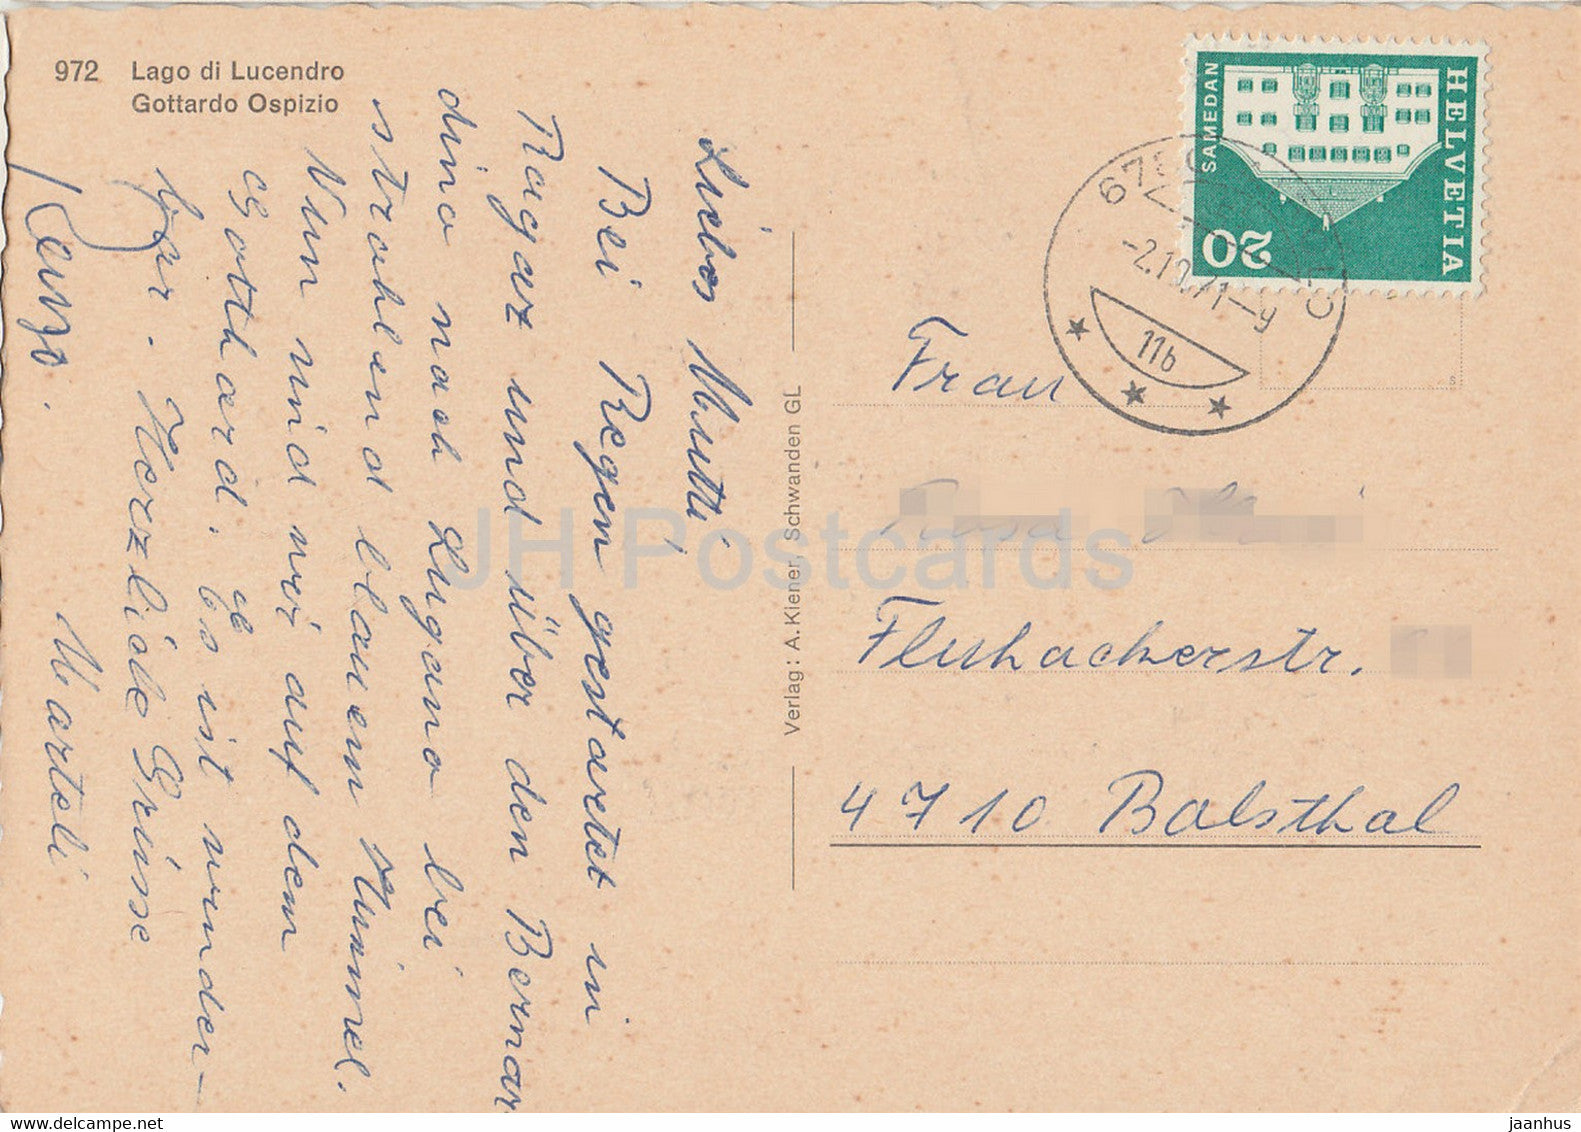 972 Lago di Lucendro
Gottardo Ospizio
Liebes Mutti
Bei Regen gestartet in
Ragaz und über den Bernar
dino nach Lugano bei
strahlend blauem Himmel.
Nun sind wir auf dem
Gotthard. Es ist wunder-
bar. Herzliche Grüsse
Marteli
Renzo.
Verlag: A. Kiener, Schwanden GL
HELVETIA
SAMEDAN
20
-2.10.71-9
11b
Frau
Rosa
Fluhackerstr.
4710 Balsthal
JH Postcards
delcampe.net
jaanhus